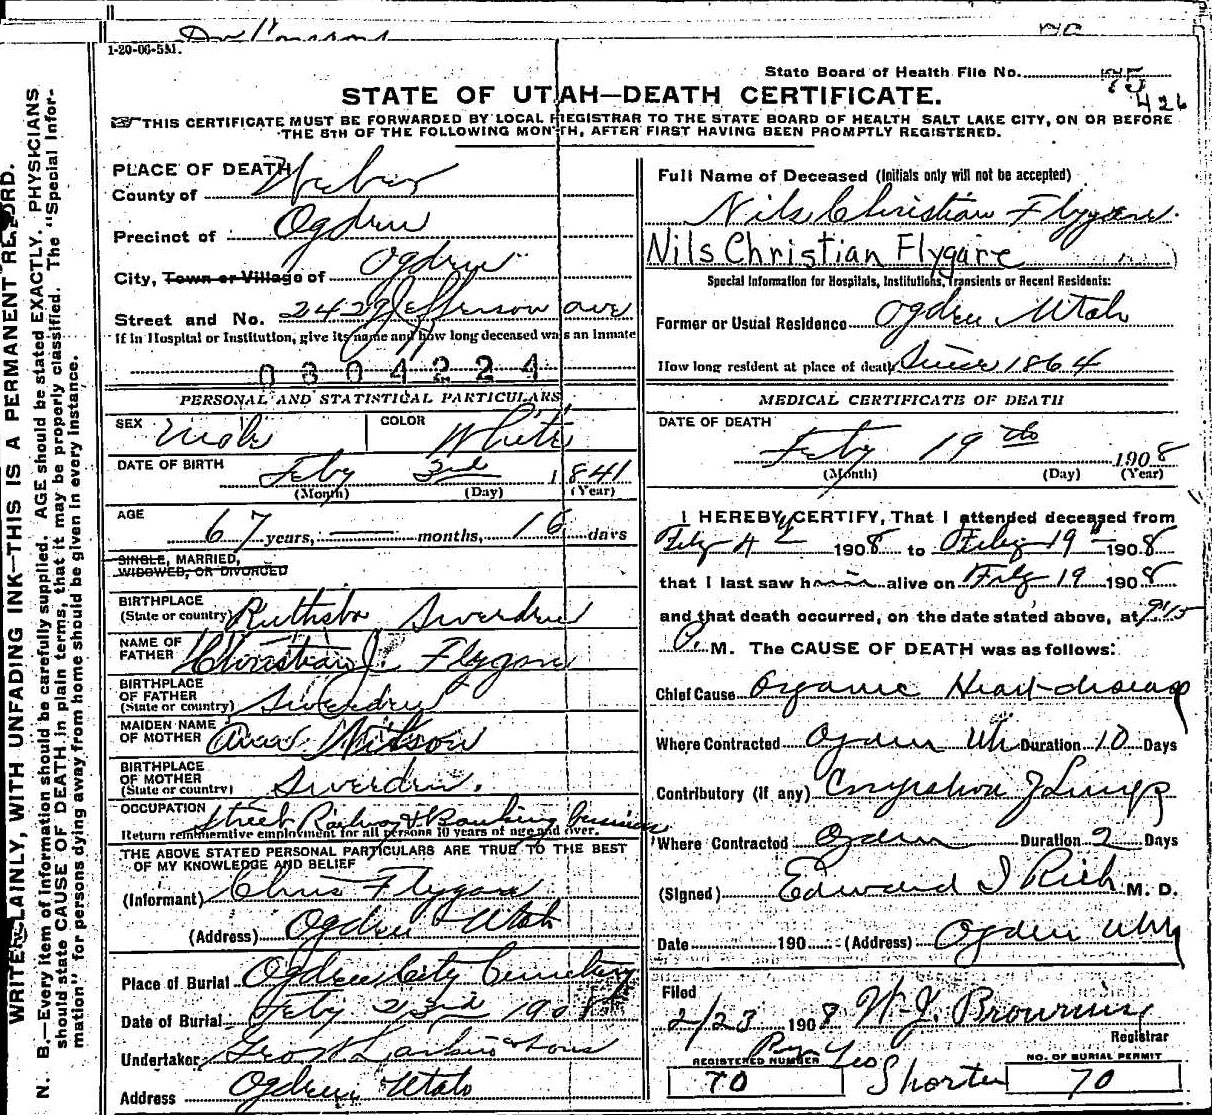 1-20-06-5M.
State Board of Health File No. 75
426
STATE OF UTAH—DEATH CERTIFICATE.
THIS CERTIFICATE MUST BE FORWARDED BY LOCAL REGISTRAR TO THE STATE BOARD OF HEALTH SALT LAKE CITY, ON OR BEFORE
THE 5TH OF THE FOLLOWING MONTH, AFTER FIRST HAVING BEEN PROMPTLY REGISTERED.
WRITE PLAINLY, WITH UNFADING INK—THIS IS A PERMANENT RECORD.
N. B.—Every item of information should be carefully supplied. AGE should be stated EXACTLY. PHYSICIANS
should state CAUSE OF DEATH in plain terms, that it may be properly classified. The "Special Infor-
mation" for persons dying away from home should be given in every instance.
PLACE OF DEATH
County of Weber
Precinct of Ogden
City, Town or Village of Ogden
Street and No. 2429 Jefferson ave
If in Hospital or Institution, give its name and how long deceased was an inmate
0304224
PERSONAL AND STATISTICAL PARTICULARS
SEX Male COLOR White
DATE OF BIRTH Feby 3rd 1841
(Month) (Day) (Year)
AGE
67 years, — months, 16 days
SINGLE, MARRIED,
WIDOWED, OR DIVORCED
BIRTHPLACE
(State or country) Sweden
NAME OF
FATHER Christian J. Flygare
BIRTHPLACE
OF FATHER
(State or country) Sweden
MAIDEN NAME
OF MOTHER
BIRTHPLACE
OF MOTHER
(State or country) Sweden.
OCCUPATION Street Railway & Banking business
Return remunerative employment for all persons 10 years of age and over.
THE ABOVE STATED PERSONAL PARTICULARS ARE TRUE TO THE BEST
OF MY KNOWLEDGE AND BELIEF
(Informant) Chris Flygare
(Address) Ogden Utah
Place of Burial Ogden City Cemetery
Date of Burial Feby 23rd 1908
Undertaker Geo W Larkin & Sons
Address Ogden Utah
Full Name of Deceased (Initials only will not be accepted)
Nils Christian Flygare.
Nils Christian Flygare
Special Information for Hospitals, Institutions, Transients or Recent Residents:
Former or Usual Residence Ogden Utah
How long resident at place of death Since 1864
MEDICAL CERTIFICATE OF DEATH
DATE OF DEATH
Feby 19th 1908
(Month) (Day) (Year)
I HEREBY CERTIFY, That I attended deceased from
Feby 4 1908 to Feby 19 1908
that I last saw him alive on Feby 19 1908
and that death occurred, on the date stated above, at 9:15
P. M. The CAUSE OF DEATH was as follows:
Chief Cause Organic Heart disease
Where Contracted Ogden Ut Duration 10 Days
Contributory (if any) Congestion of Lungs
Where Contracted Ogden Duration 2 Days
(Signed) Edward I Rich M. D.
Date 190 (Address) Ogden Utah
Filed
2/23 1908 W. J. Browning
Registrar
Per Leo Shorten
REGISTERED NUMBER
70
NO. OF BURIAL PERMIT
70